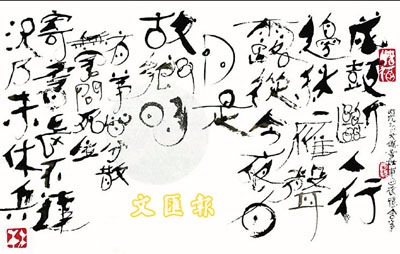 戍鼓斷人行
邊秋一雁聲
露從今夜白
月是
故鄉明
有弟皆分散
無家問死生
寄書長不達
況乃未休兵
文匯報